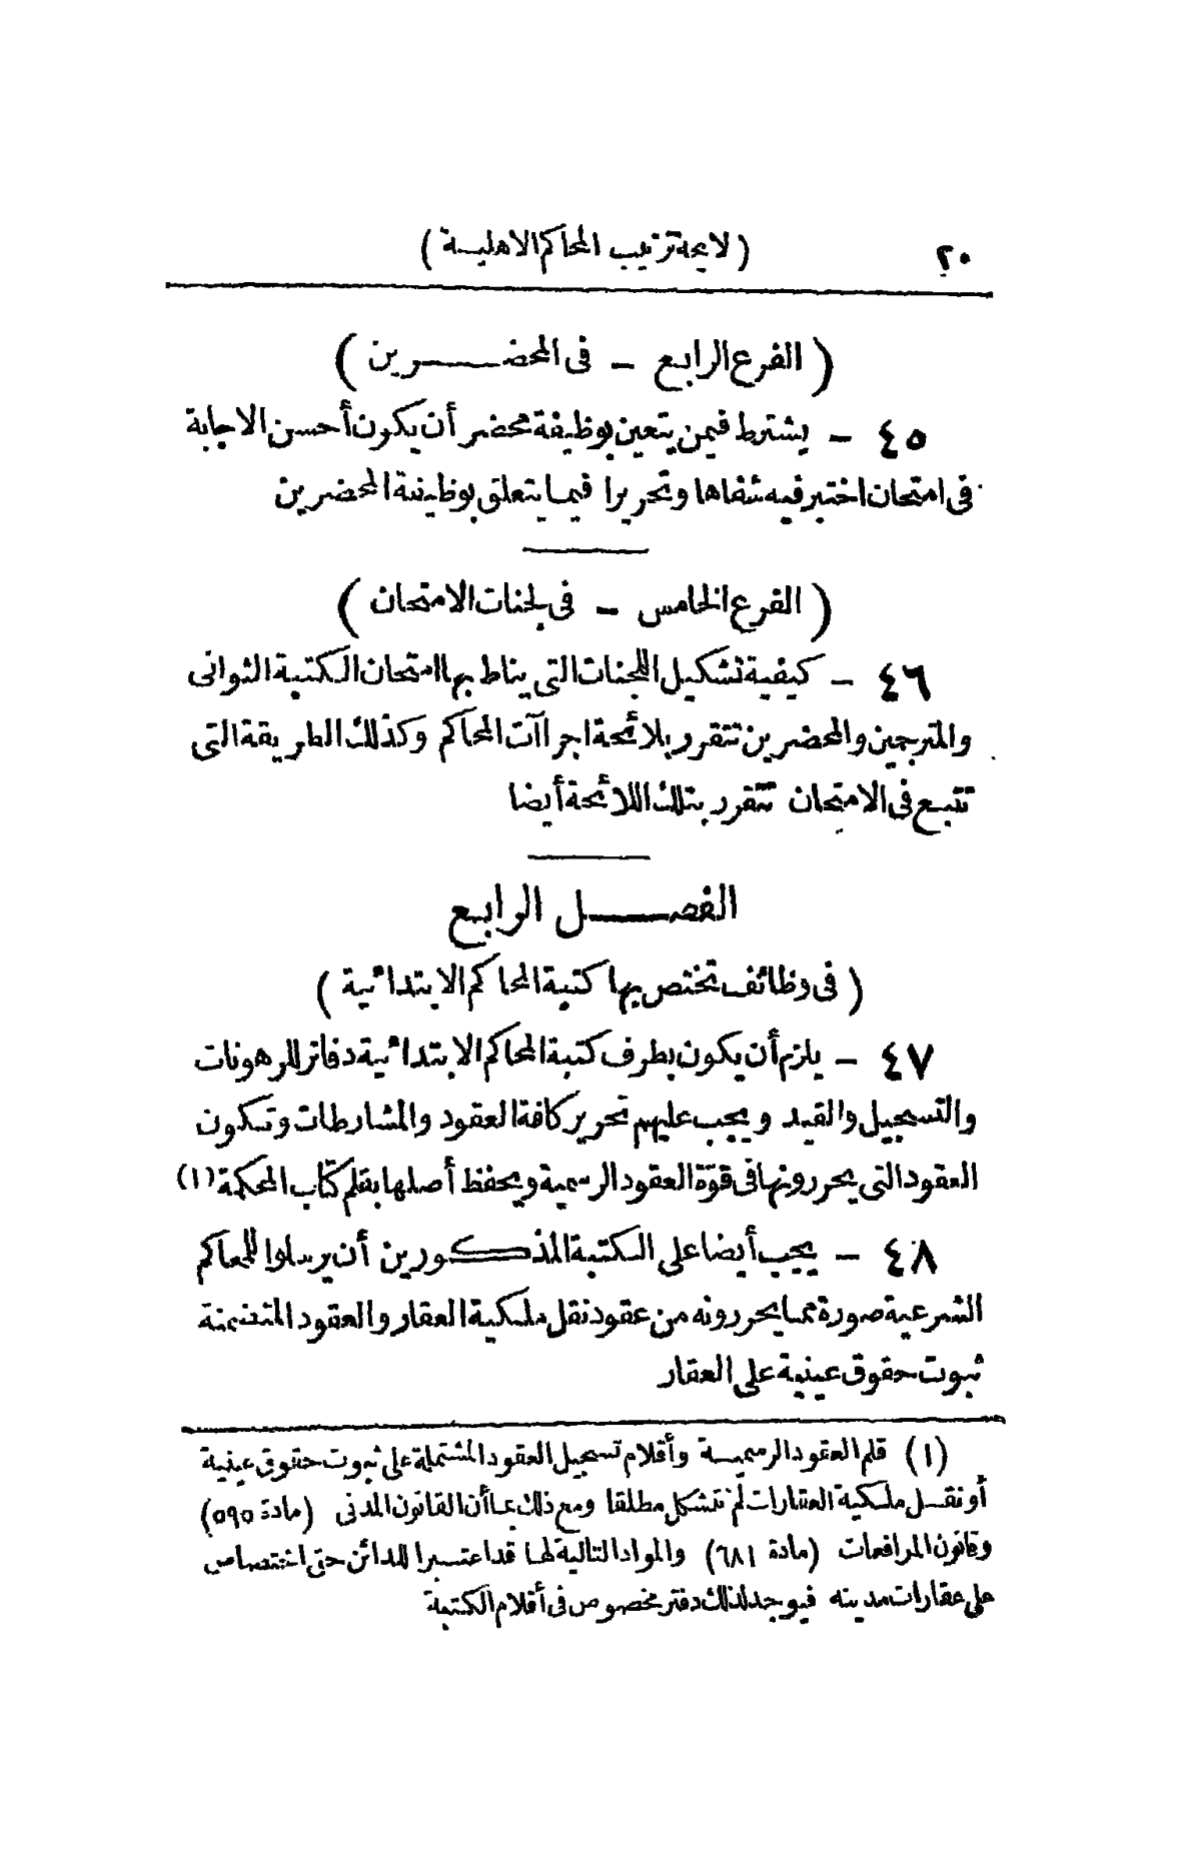 ٢٠ (لايحة ترتيب المحاكم الاهلية)
(الفرع الرابع – فى المحضرين)
٤٥ – يشترط فيمن يتعين بوظيفة محضر أن يكون أحسن الاجابة
فى امتحان اختبر فيه شفاها وتحريرا فيما يتعلق بوظيفة المحضرين
(الفرع الخامس – فى لجنات الامتحان)
٤٦ – كيفية تشكيل اللجنات التى يناط بها امتحان الكتبة الثوانى
والمترجمين والمحضرين تتقرر بلائحة اجراآت المحاكم وكذلك الطريقة التى
تتبع فى الامتحان تتقرر بتلك اللائحة أيضا
الفصل الرابع
(فى وظائف تختص بها كتبة المحاكم الابتدائية)
٤٧ – يلزم أن يكون بطرف كتبة المحاكم الابتدائية دفاتر للرهونات
والتسجيل والقيد ويجب عليهم تحرير كافة العقود والمشارطات وتكون
العقود التى يحررونها فى قوّة العقود الرسمية ويحفظ أصلها بقلم كتّاب المحكمة (١)
٤٨ – يجب أيضا على الكتبة المذكورين أن يرسلوا للمحاكم
الشرعية صورة مما يحررونه من عقود نقل ملكية العقار والعقود المتضمنة
ثبوت حقوق عينية على العقار
(١) قلم العقود الرسمية وأقلام تسجيل العقود المشتملة على ثبوت حقوق عينية
أو نقل ملكية العقارات لم تتشكل مطلقا ومع ذلك بما أن القانون المدنى (مادة ٥٩٥)
وقانون المرافعات (مادة ٦٨١) والمواد التالية لها قد اعتبرا للدائن حق اختصاص
على عقارات مدينه فيوجد لذلك دفتر مخصوص فى أقلام الكتبة